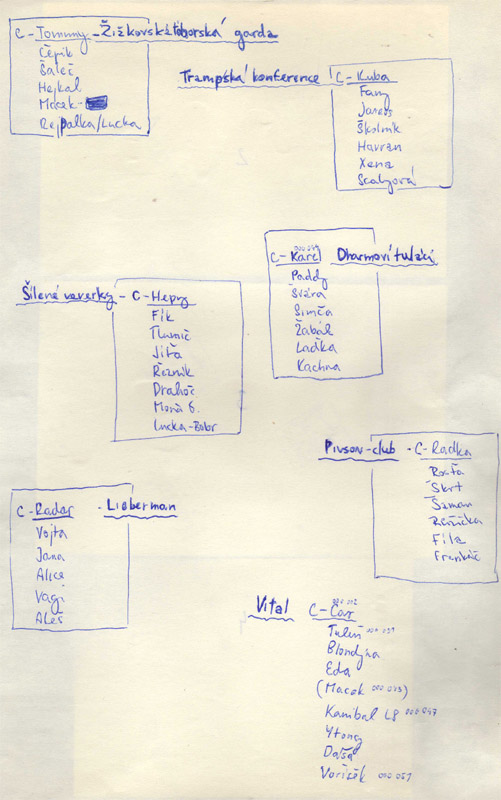 C - Tommy - Žižkovská táborská garda
Čépik
Šaleč
Hejkal
Macek -
Rejpalka/Lucka
Trampská konference C - Kuba
Fany
James
Školník
Havran
Xena
Scalyová
C - Karel Dharmoví tuláci
Paddy
Švára
Simča
Žabák
Laďka
Kachna
Šílené veverky - C - Hepy
Fík
Tlumič
Jiřa
Řezník
Drahoš
Moná G.
Lucka - Bobr
Pivson - club - C - Radka
Rosťa
Škrt
Šaman
Řežička
Fila
C - Radar - Lieberman
Vojta
Jana
Alice
Vági
Aleš
Vital C - Čar
Tuleň
Blondýna
Eda
(Macek
Kanibal L8 000 047
Ytong
Dáša
Voříšek 000 051